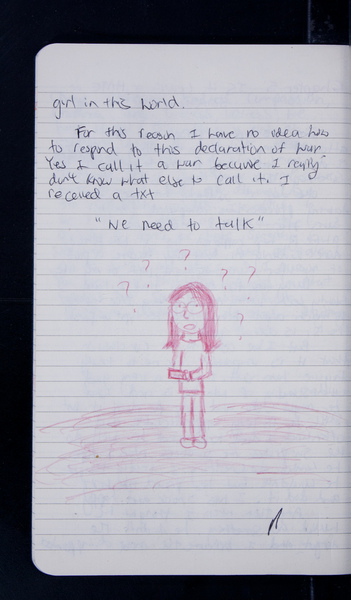 girl in this world.
For this reason I have no idea how
to respond to this declaration of war
Yes I call it a war because I really
don't know what else to call it. I
received a txt
"We need to talk"
? ? ? ? ? ?